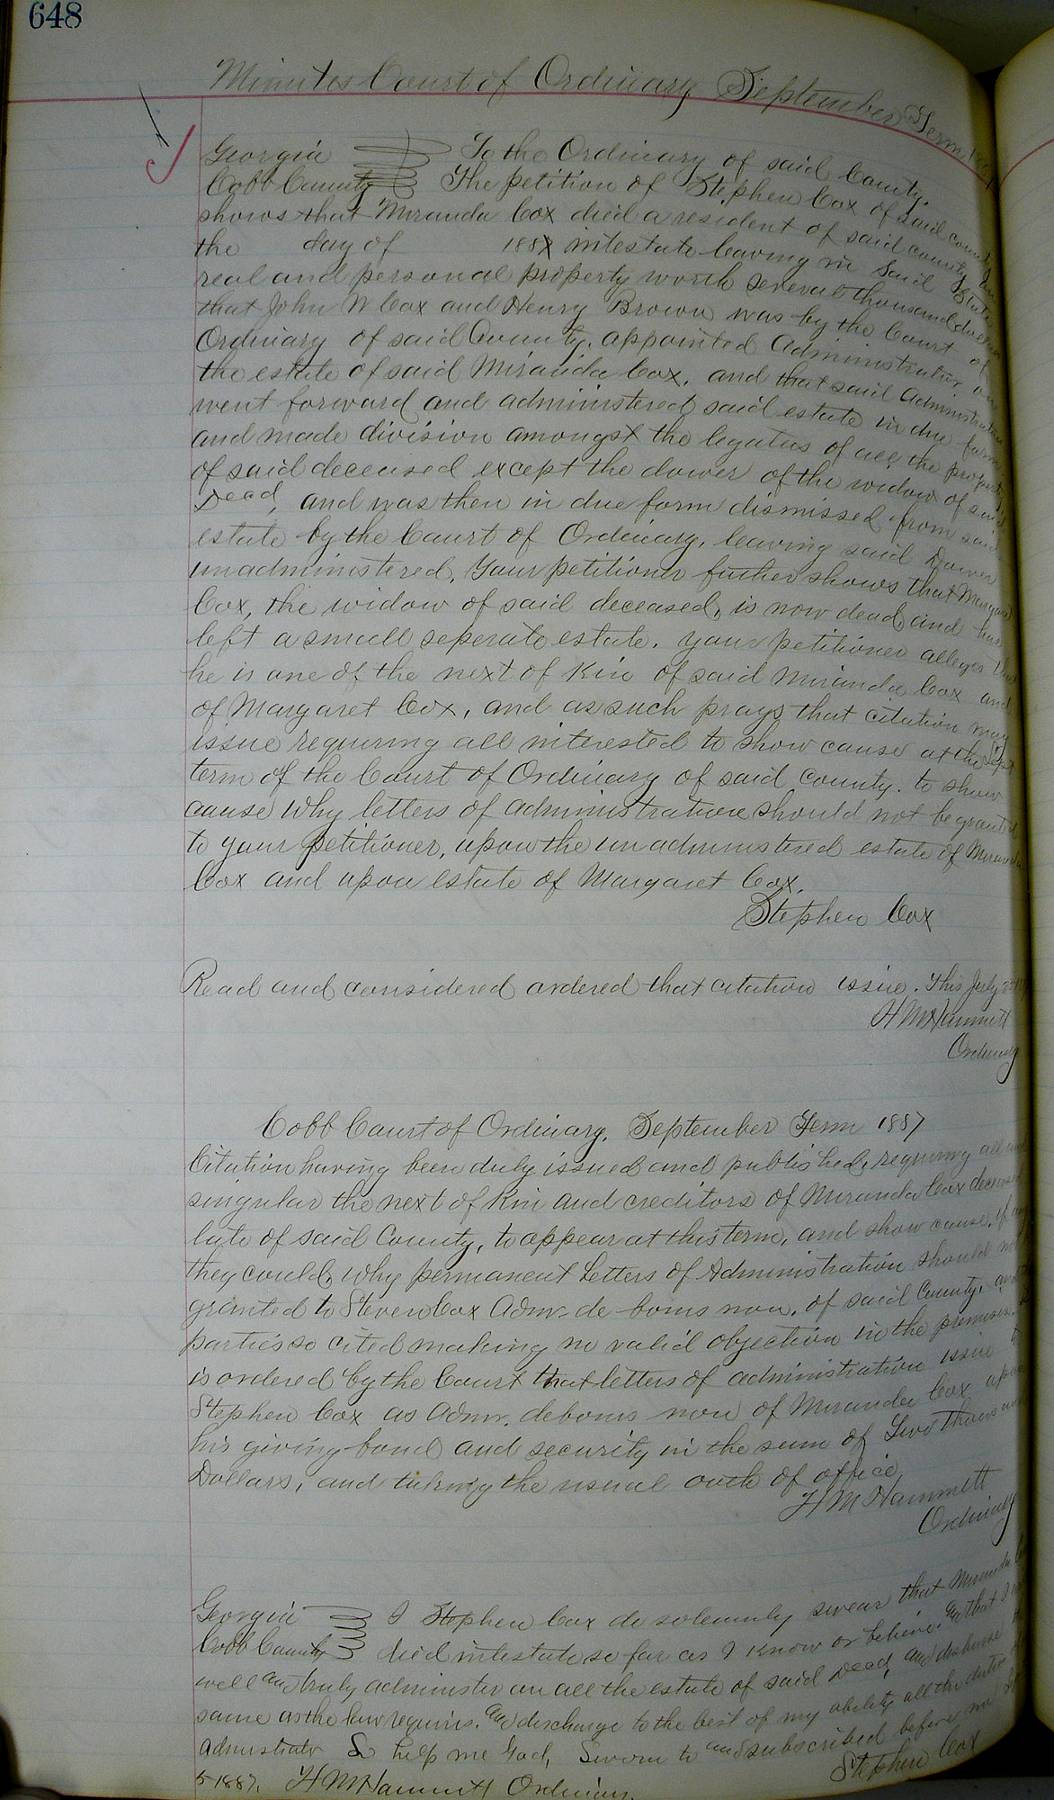 648
Minutes Court of Ordinary September Term
Georgia To the Ordinary of said County.
Cobb County The petition of Stephen Cox of said county
shows that Miranda Cox died a resident of said county
the day of 188 intestate leaving in said State
real and personal property worth several thousand dollars
that John W Cox and Henry Brown was by the Court of
Ordinary of said County, appointed Administrator on
the estate of said Miranda Cox, and that said Administrators
went forward and administered said estate in due form
and made division amongst the legatus of all the property
of said deceased except the dower of the widow of said
Dead, and was then in due form dismissed from said
estate by the Court of Ordinary, leaving said Dower
unadministered, Your petitioner further shows that Margaret
Cox, the widow of said deceased, is now dead and has
left a small seperate estate. your petitioner alleges that
he is one of the next of Kin of said Miranda Cox and
of Margaret Cox, and as such prays that citation may
issue requiring all interested to show cause at the Sept
term of the Court of Ordinary of said county. to show
cause why letters of administration should not be granted
to your petitioner, upon the unadministered estate of Miranda
Cox and upon estate of Margaret Cox.
Stephen Cox
Read and considered ordered that citation issue. This July
H M Hammett
Ordinary
Cobb Court of Ordinary. September Term 1887
Citation having been duly issued and published, requiring all and
singular the next of Kin and creditors of Miranda Cox deceased
late of said County, to appear at this term, and show cause, if any
they could, why permanent Letters of Administration should not
granted to Steven Cox Admr. de bonis non, of said County, and
parties so cited making no valid objection in the premises.
is ordered by the Court that letters of administration issue to
Stephen Cox as Admr. debonis non of Miranda Cox upon
his giving bond and security in the sum of Two Thousand
Dollars, and taking the usual oath of office
H M Hammett
Ordinary
Georgia I Stephen Cox do solemnly swear that Miranda
Cobb County died intestate so far as I know or believe. and that I
well and truly administer on all the estate of said Dead, and disburse
same as the law requires. and discharge to the best of my ability all the duties
admistrator So help me God, Sworn to and subscribed before me
5 1887. H M Hammett Ordinary. Stephen Cox